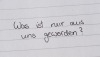 Was ist nur aus
uns geworden?